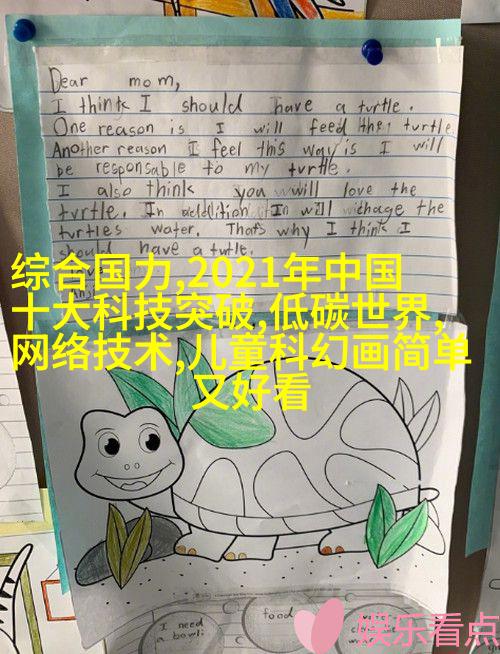 Dear mom,
I think I should have a turtle.
One reason is I will feed the turtle.
Another reason I feel this way is I will
be responsable to my turtle.
I also think you will love the
turtle. In addition I will chage the
turtles water. Thats why I think I
should have a turtle.
综合国力,2021年中国
十大科技突破,低碳世界,
网络技术,儿童科幻画简单
又好看
I need
a bowl
food
娱乐看点